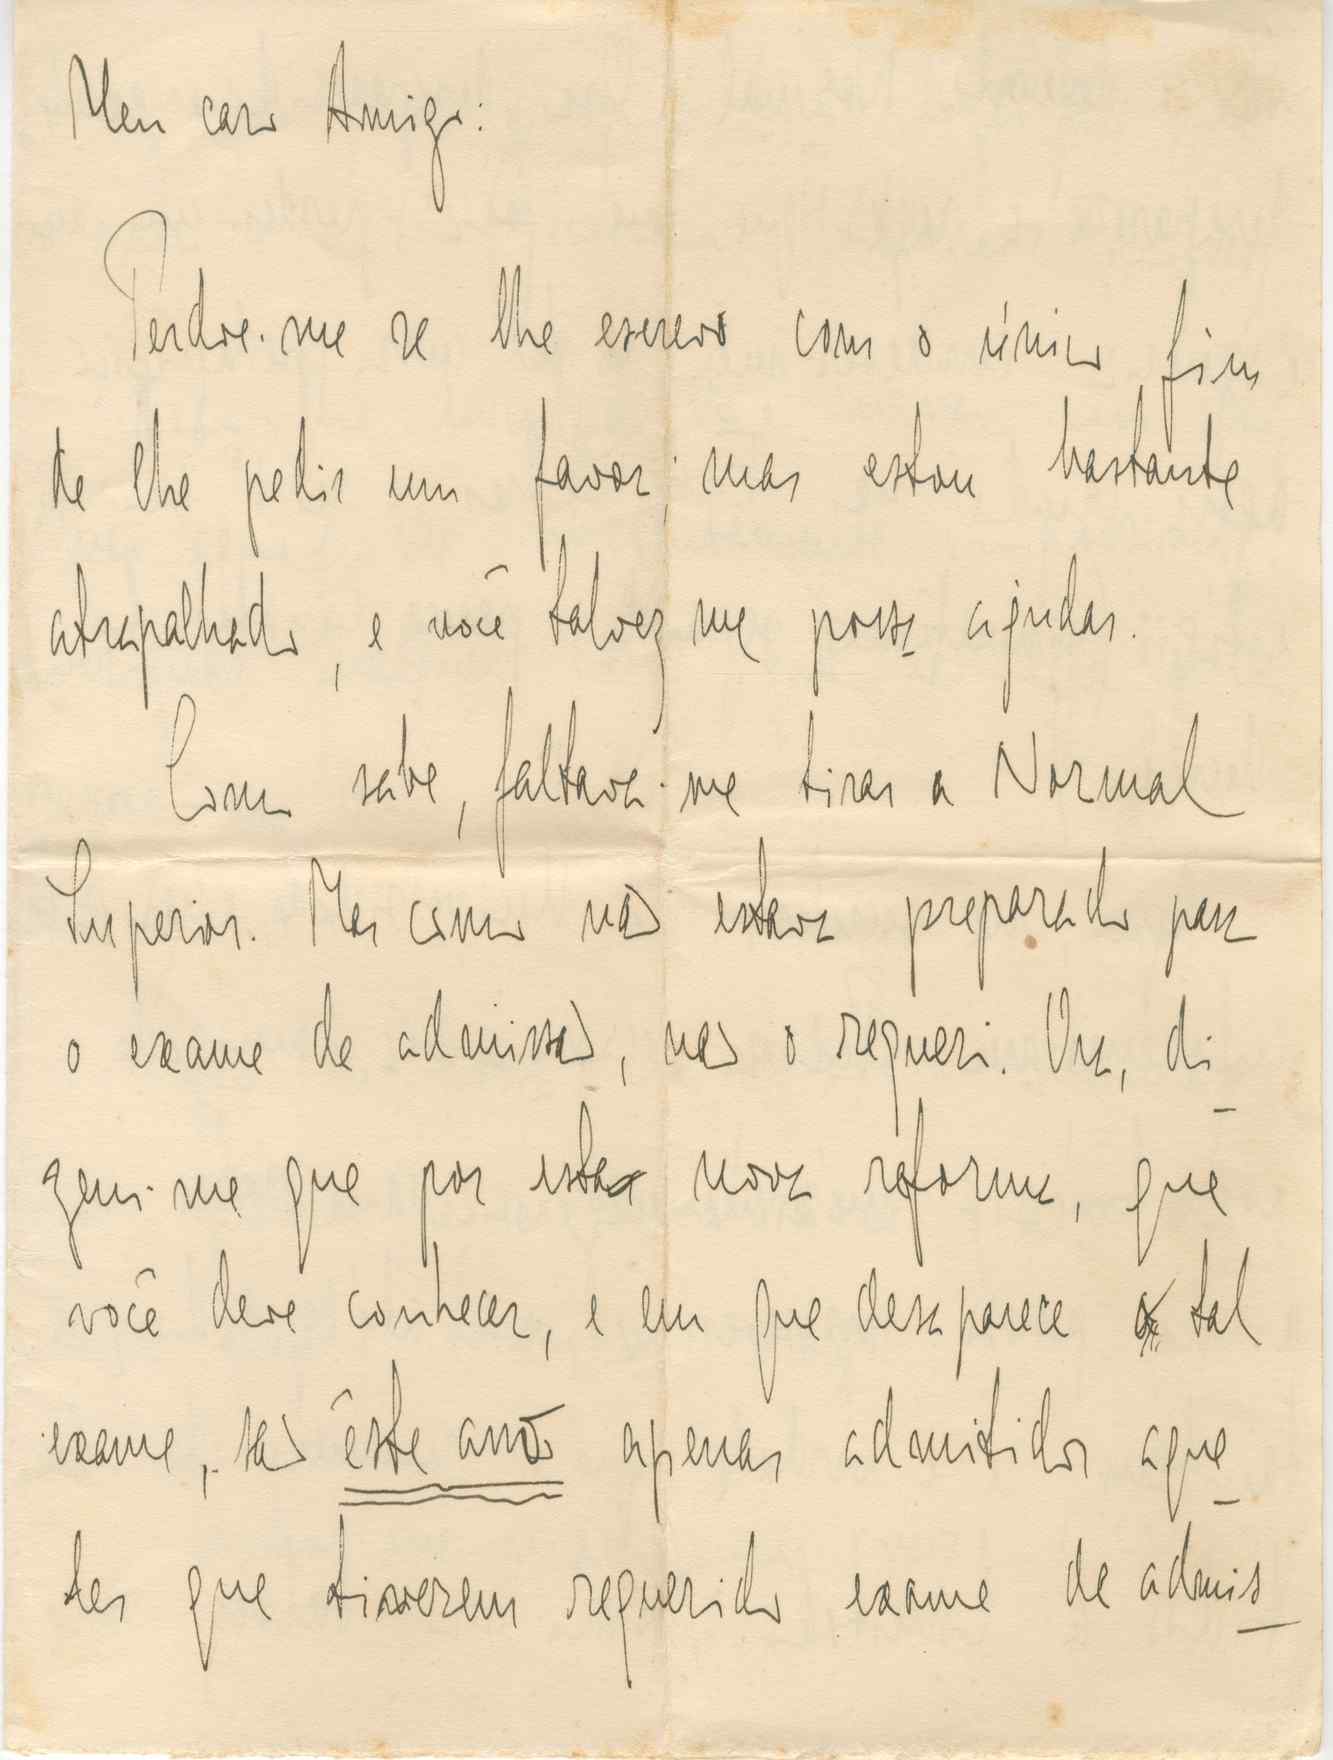 Meu caro Amigo:
Perdoe-me se lhe escrevo com o único fim
de lhe pedir um favor; mas estou bastante
atrapalhado, e você talvez me possa ajudar.
Como sabe, faltava-me tirar a Normal
Superior. Mas como não estava preparado para
o exame de admissão, não o requeri. Ora, di-
zem-me que por esta nova reforma, que
você deve conhecer, e em que desaparece o tal
exame, são êste ano apenas admitidos aque-
les que tiverem requerido exame de admis-